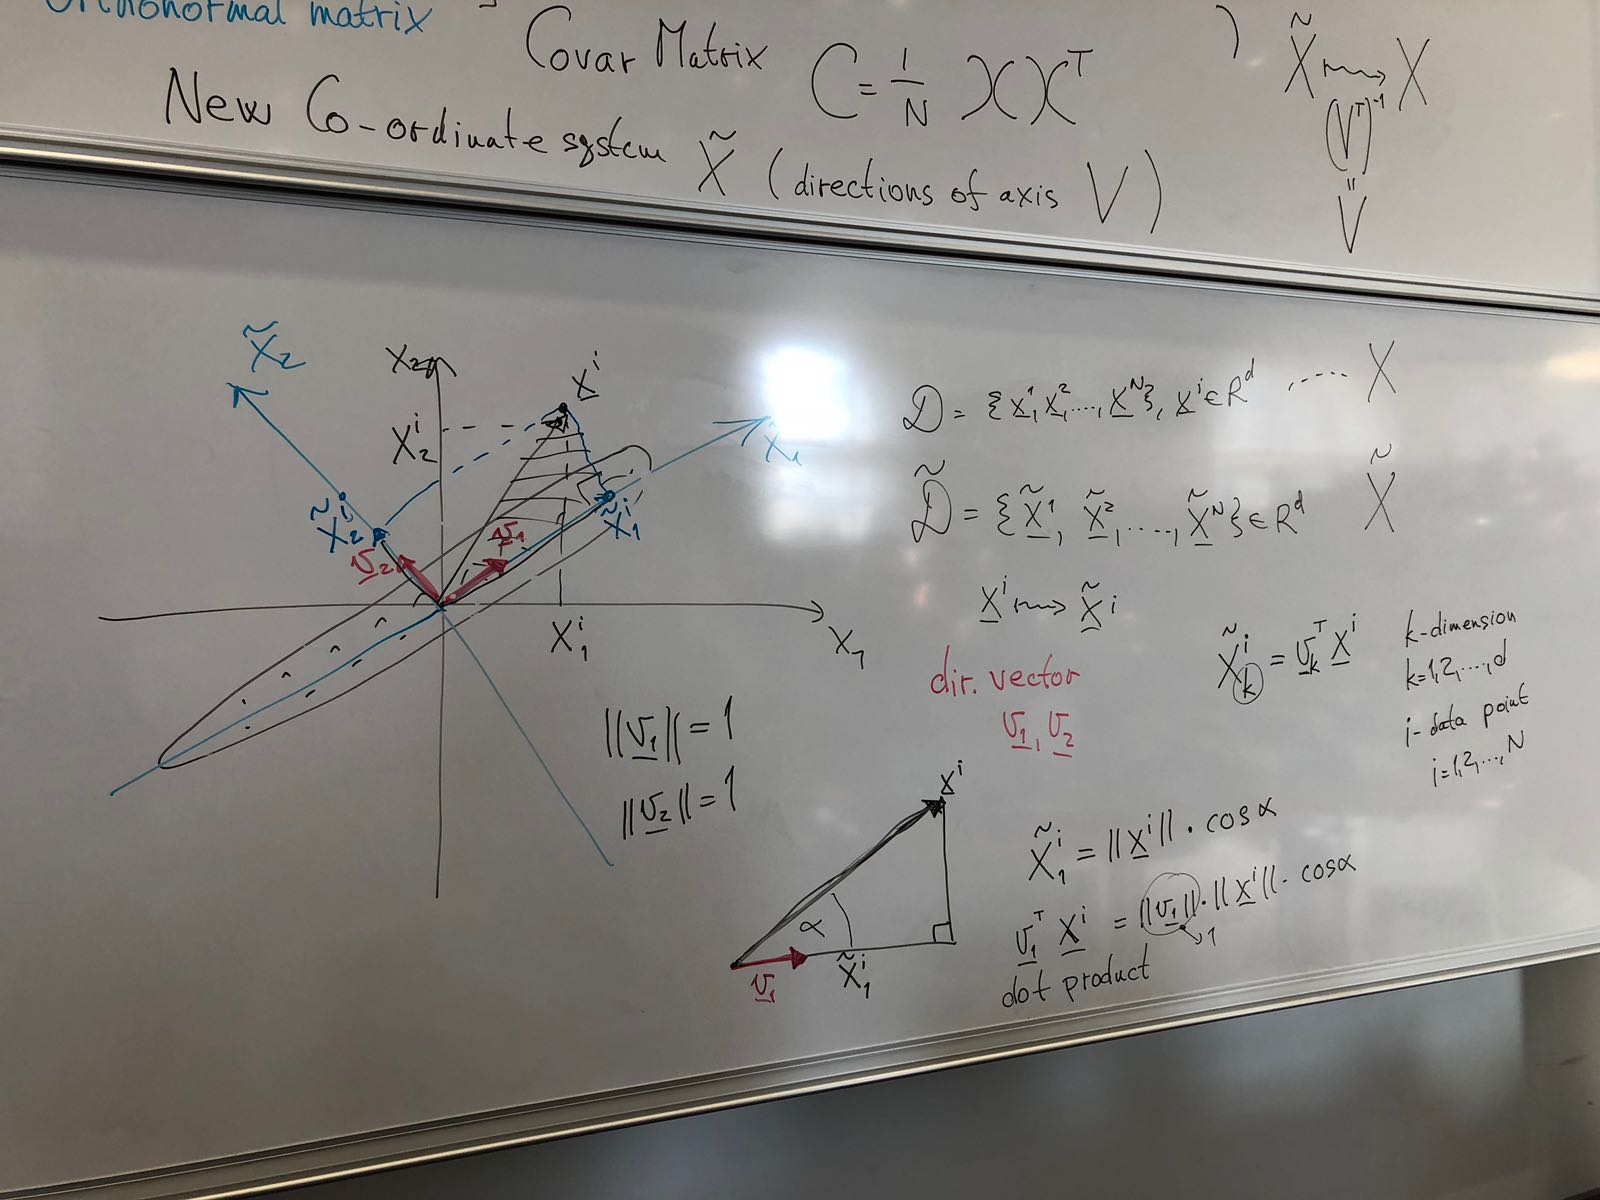 Orthonormal matrix
Covar Matrix C = 1/N XXᵀ
New Co-ordinate system X̃ (directions of axis V)
X̃ ⟼ X
(Vᵀ)⁻¹
=
V
X̃₂
x₂
x̲ⁱ
X₂ⁱ
X̃₁
X̃₂ⁱ
X̃₁ⁱ
v̲₂
v̲₁
X₁ⁱ
X₁
||v̲₁|| = 1
||v̲₂|| = 1
D = {x̲¹, x̲², ..., x̲ᴺ}, x̲ⁱ ∈ Rᵈ ..... X
D̃ = {x̲̃¹, x̲̃², ....., x̲̃ᴺ} ∈ Rᵈ X̃
x̲ⁱ ⟼ x̲̃ⁱ
dir. vector
v̲₁, v̲₂
X̃ₖⁱ = v̲ₖᵀ x̲ⁱ
k-dimension
k=1,2,....,d
i-data point
i=1,2,...,N
x̲ⁱ
α
v̲₁
X̃₁ⁱ
X̃₁ⁱ = ||x̲ⁱ|| · cosα
v̲₁ᵀ x̲ⁱ = ||v̲₁|| · ||x̲ⁱ|| · cosα
↘1
dot product